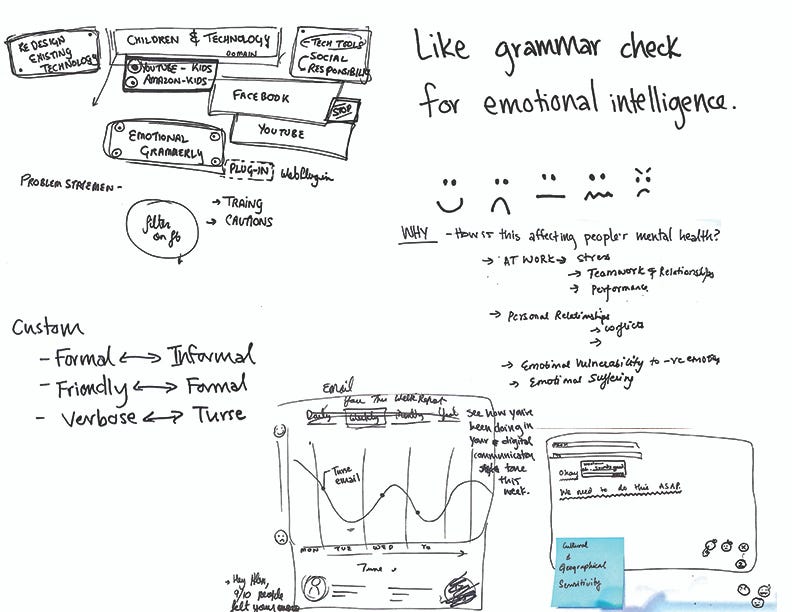 RE DESIGN
EXISTING
TECHNOLOGY
CHILDREN & TECHNOLOGY
DOMAIN
TECH TOOLS
SOCIAL
RESPONSIBILI
YOUTUBE - KIDS
AMAZON-KIDS
FACEBOOK
STOP
YOUTUBE
EMOTIONAL
GRAMMERLY
PLUG-IN
WebPlugin
PROBLEM STATEMEN -
filter
on fb
→ TRAING
→ CAUTIONS
Like grammar check
for emotional intelligence.
WHY - How is this affecting people's mental health?
→ AT WORK → stress
→ Teamwork & Relationships
→ Performance
→ Personal Relationships
→ conflicts
→
→ Emotional Vulnerability to -ve emotions
→ Emotional Suffering
Custom
- Formal ↔ Informal
- Friendly ↔ Formal
- Verbose ↔ Turse
Email
You This Week Report
Daily Weekly Monthly Year
See how you've
been doing in
your digital
communication
tone
this
week.
Tune
email
MON TUE WED TH
Time
→ Hey Han,
9/10 people
felt your
Okay
We need to do this ASAP.
Cultural
&
Geographical
Sensitivity